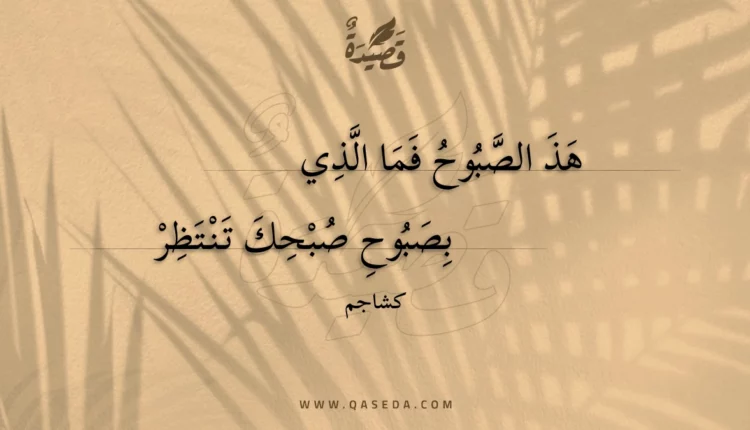 قَصِيدَةٌ
هَذَ الصَّبُوحُ فَمَا الَّذِي
بِصَبُوحِ صُبْحِكَ تَنْتَظِرْ
كشاجم
WWW.QASEDA.COM